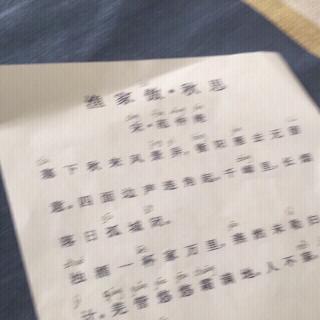 渔家傲·秋思
宋·范仲淹
塞下秋来风景异，衡阳雁去无留
意。四面边声连角起，千嶂里，长烟
落日孤城闭。
浊酒一杯家万里，燕然未勒归
计。羌管悠悠霜满地。人不寐，